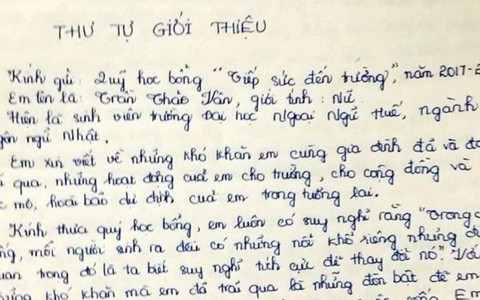 THƯ TỰ GIỚI THIỆU
Kính gửi: Quỹ học bổng "Tiếp sức đến trường", năm 2017-2
Em tên là: Trần Thảo Vân, giới tính: Nữ
Hiện là sinh viên trường Đại học Ngoại Ngữ Huế, ngành
ngữ Nhật.
Em xin viết về những khó khăn em cũng gia đình đã và đa
qua, những hoạt động của em cho trường, cho cộng đồng và
mơ, hoài bão dự định của em trong tương lai.
Kính thưa quý học bổng, em luôn có suy nghĩ rằng "Trong c
mỗi người sinh ra đều có những nỗi khổ riêng nhưng đi
quan trọng đó là ta biết suy nghĩ tích cực để thay đổi nó". Với
khó khăn mà em đã trải qua là những đòn bật để em
Em